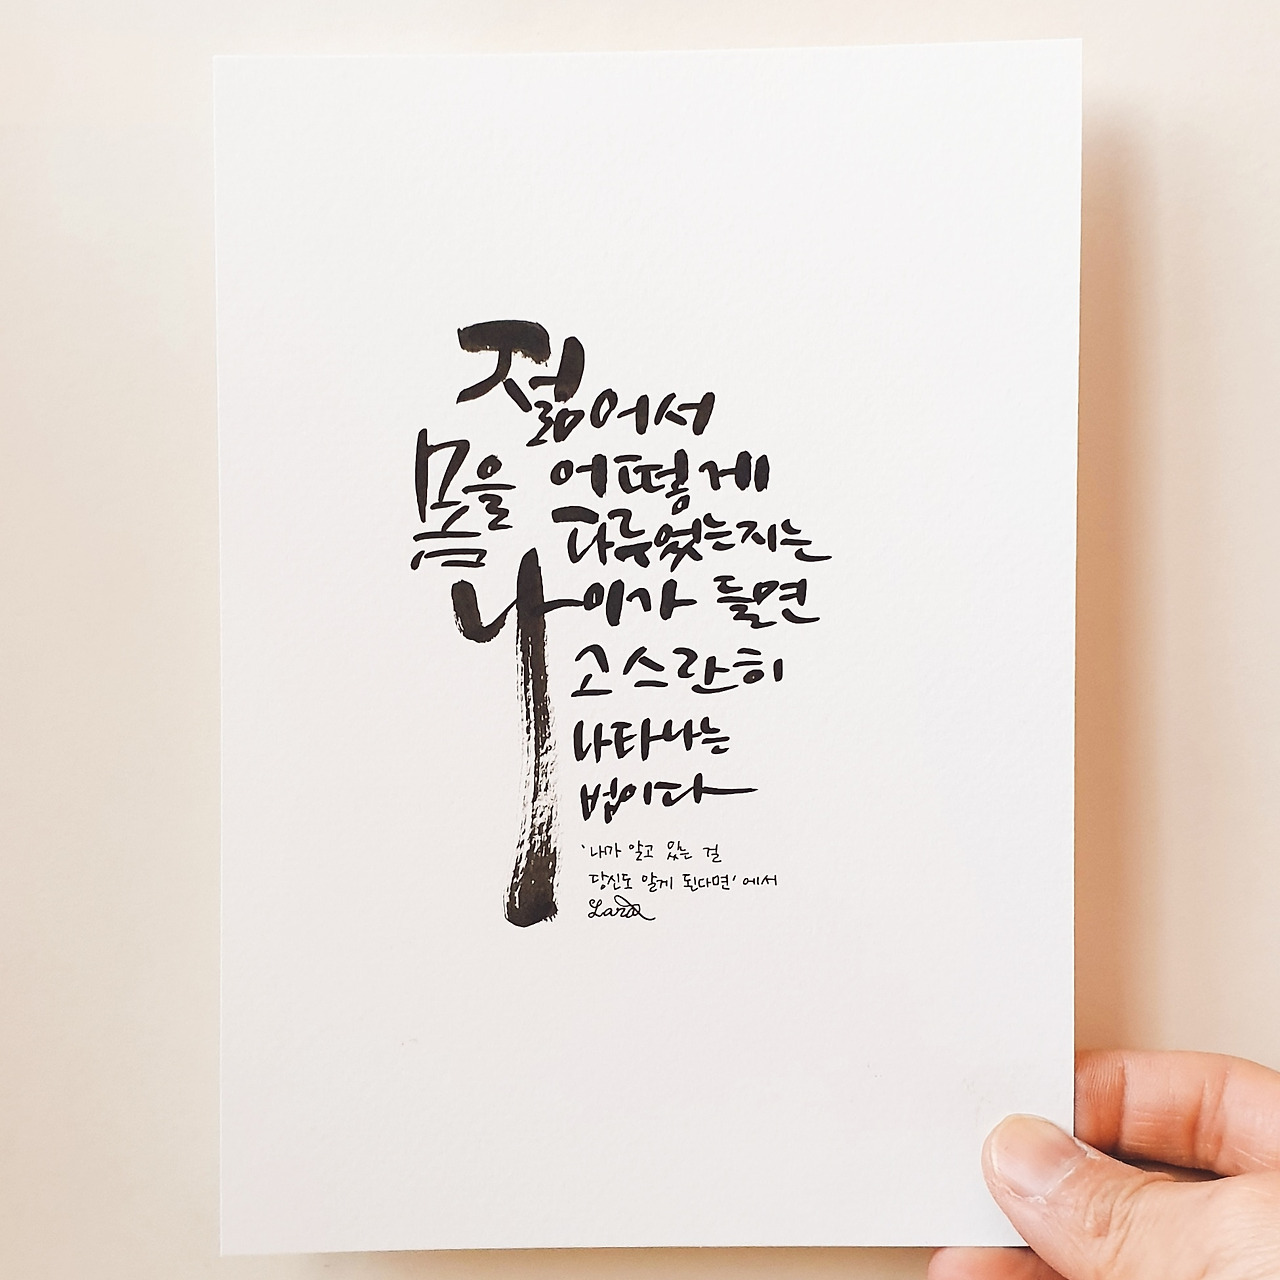 젊어서
몸을 어떻게
다루었는지는
나이가 들면
고스란히
나타나는
법이다
'내가 알고 있는 걸
당신도 알게 된다면' 에서
Lara